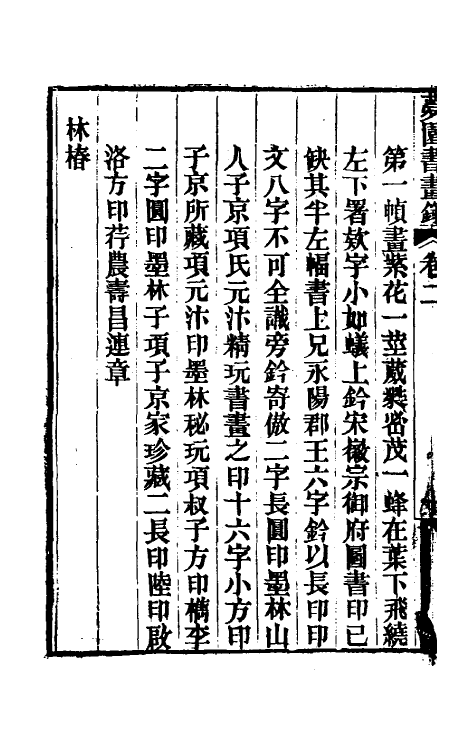 夢園書畫錄 卷二
第一幀畫紫花一莖葳蕤密茂一蜂在葉下飛繞
左下署欵字小如蟻上鈐宋徽宗御府圖書印已
缺其半左幅書上兄永陽郡王六字鈐以長印印
文八字不可全識旁鈐寄傲二字長圓印墨林山
人子京項氏元汴精玩書畫之印十六字小方印
子京所藏項元汴印墨林秘玩項叔子方印檇李
二字圓印墨林子項子京家珍藏二長印陸印啟
洛方印荇農壽昌連章
林椿